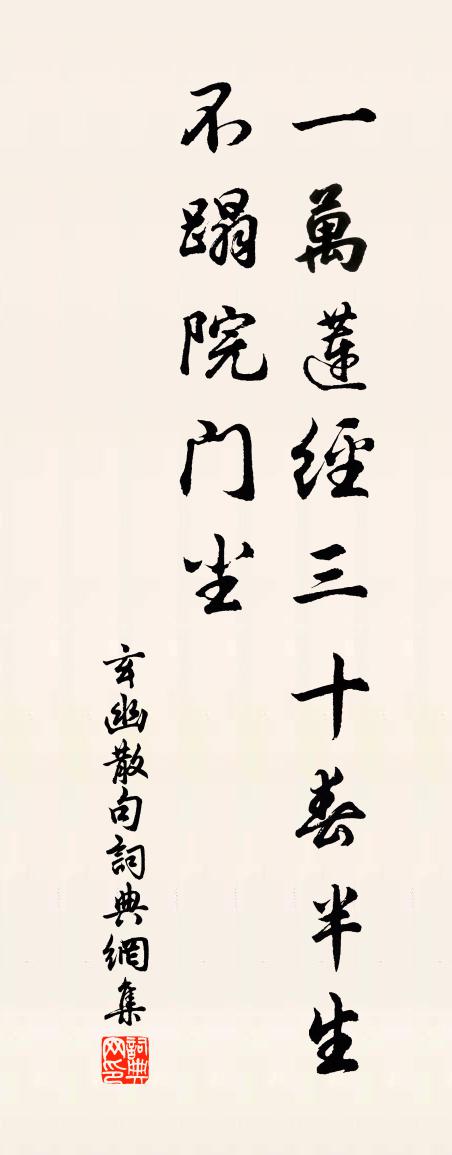 一萬蓮經三十春半生
不蹋院门尘
玄幽散句詞典網集
詞典
网印